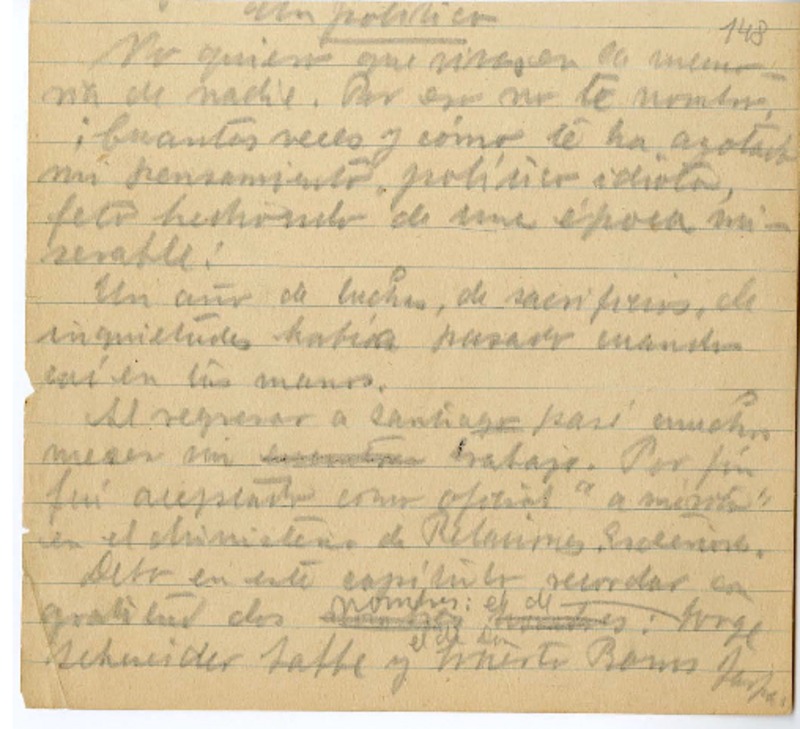 Un político
148
No quiero que vivas en la memo-
ria de nadie. Por eso no te nombro,
¡Cuantas veces y cómo te ha azotado
mi pensamiento, político idiota,
feto hediondo de una época mi-
serable!
Un año de luchas, de sacrificios, de
inquietudes había pasado cuando
caí en tus manos.
Al regresar a Santiago pasé muchos
meses sin trabajo. Por fin
fui aceptado como oficial "a mérito"
en el Ministerio de Relaciones Exteriores.
Debo en este capítulo recordar con
nombres: el de
gratitud dos : Jorge
el de
Schneider Labbe y Ernesto Barros Jarpa.